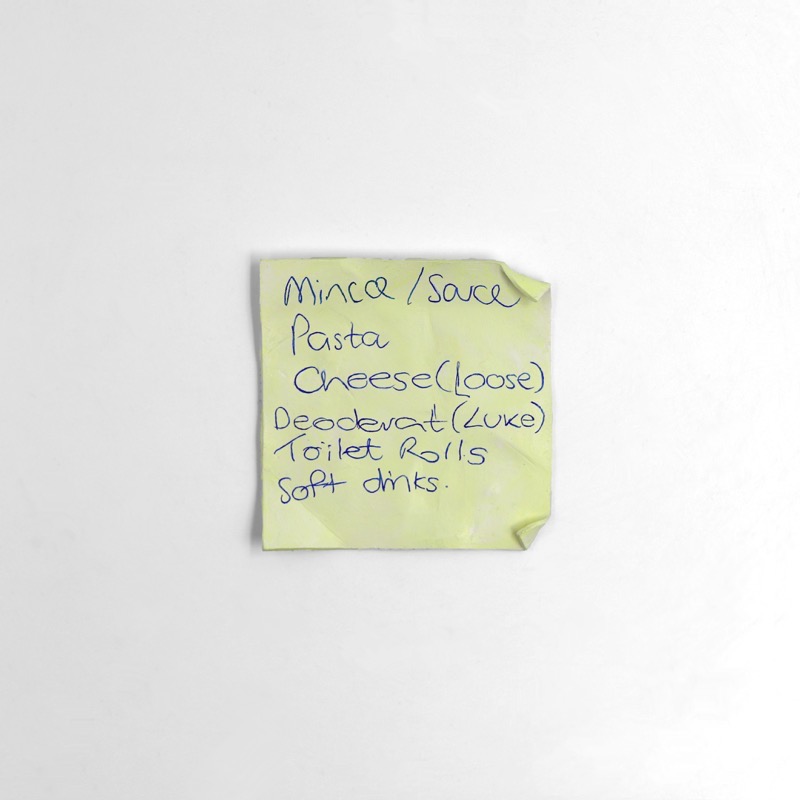 Mince / Sauce
Pasta
Cheese (Loose)
Deoderant (Luke)
Toilet Rolls
Soft drinks.